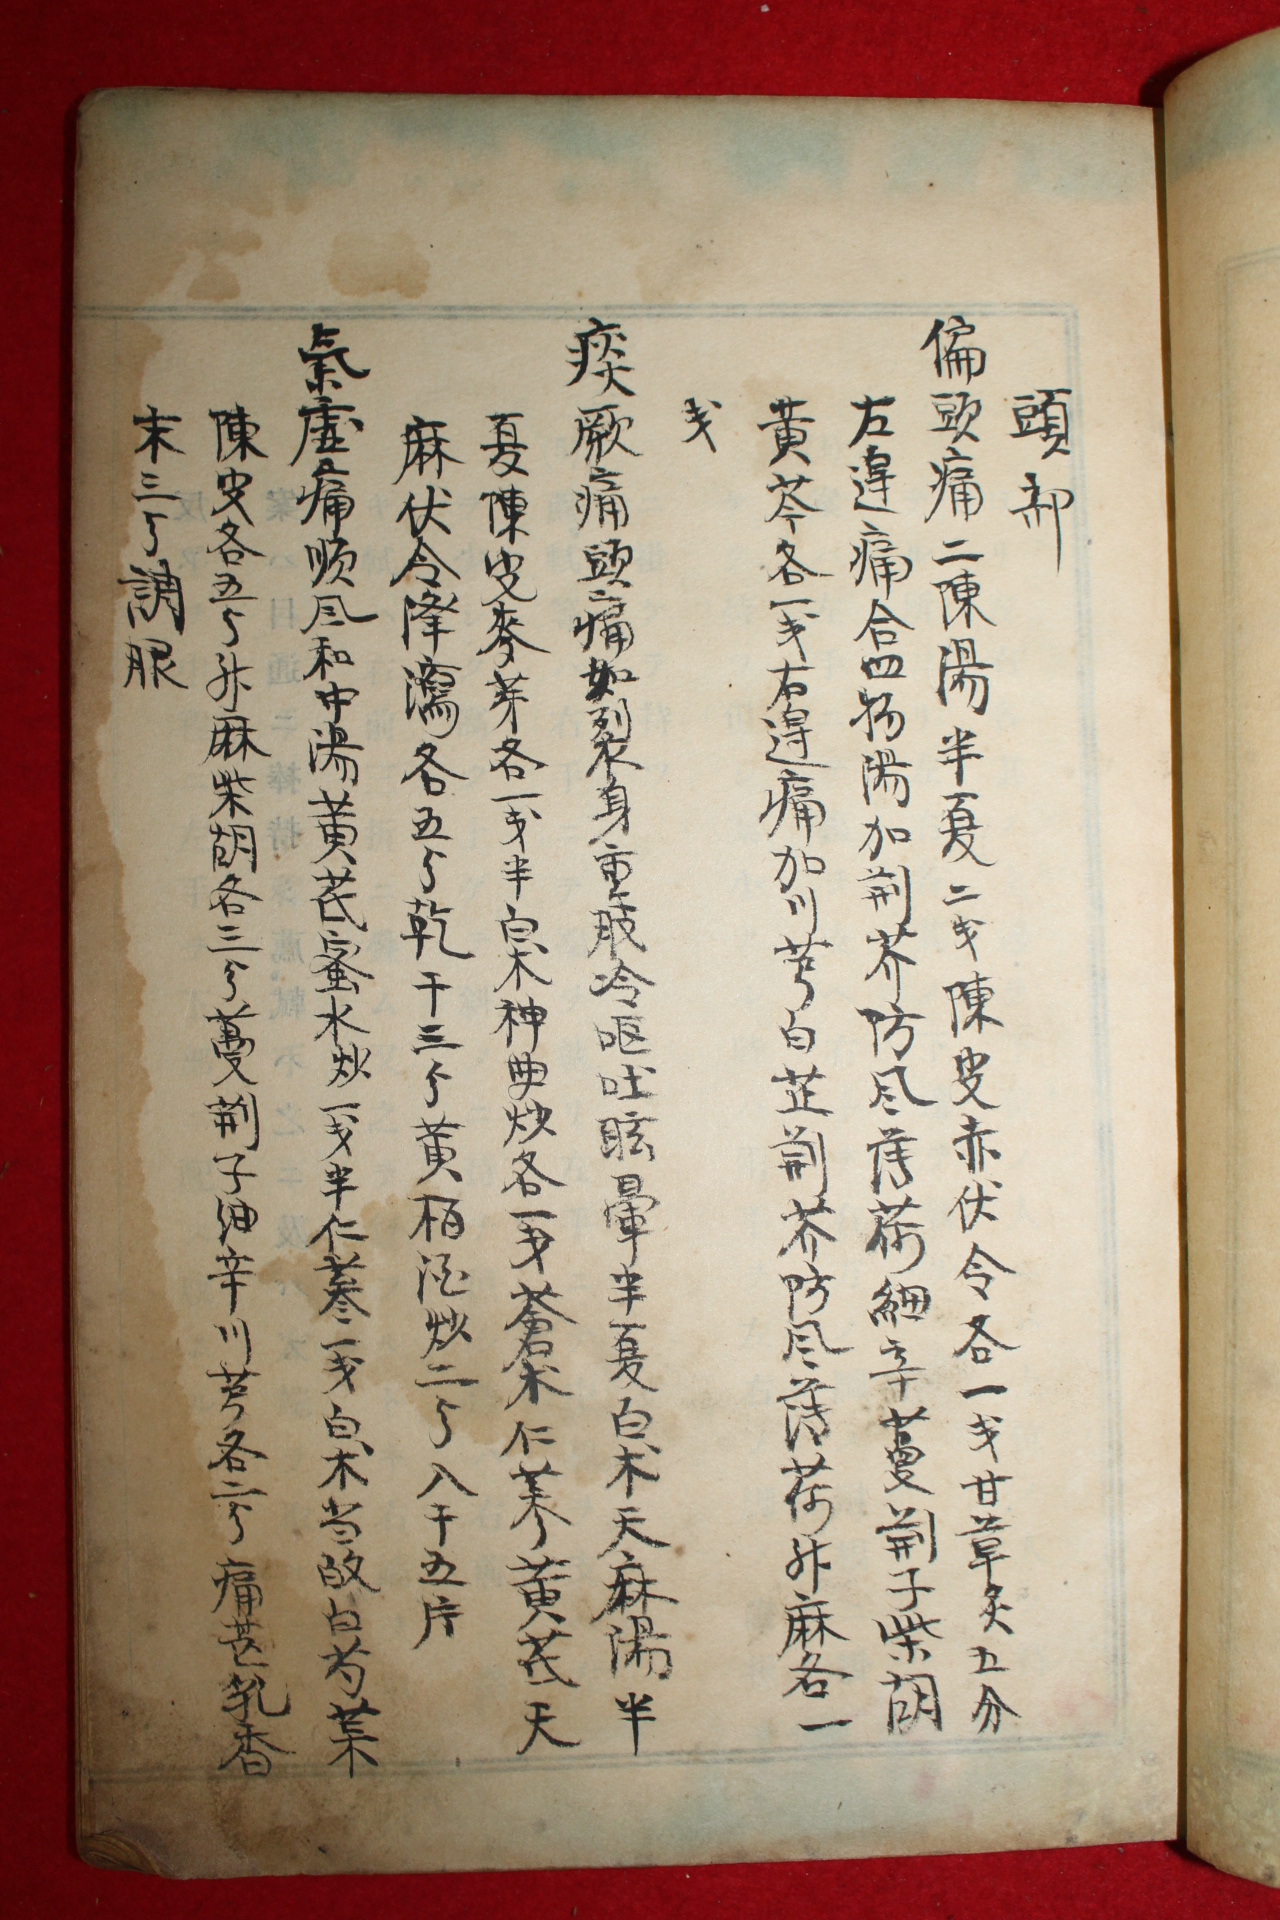 頭部
偏頭痛二陳湯半夏二戔陳皮赤伏令各一戔甘草炙五分
左邊痛合四物湯加荊芥防风薄荷細辛蔓荊子柴胡
黃芩各一戔右邊痛加川芎白芷荊芥防风薄荷升麻各一
戔
痰厥痛頭痛如裂身重肢冷呕吐眩暈半夏白朮天麻湯半
夏陳皮麥芽各一戔半白朮神曲炒各一戔蒼朮仁蔘黃芪天
麻伏令澤瀉各五分乾干三分黃栢酒炒二分入干五片
氣虛痛順风和中湯黃芪蜜水炒一戔半仁蔘一戔白朮当歸白芍藥
陳皮各五分升麻柴胡各三分蔓荊子細辛川芎各二分痛甚乳香
末三分調服